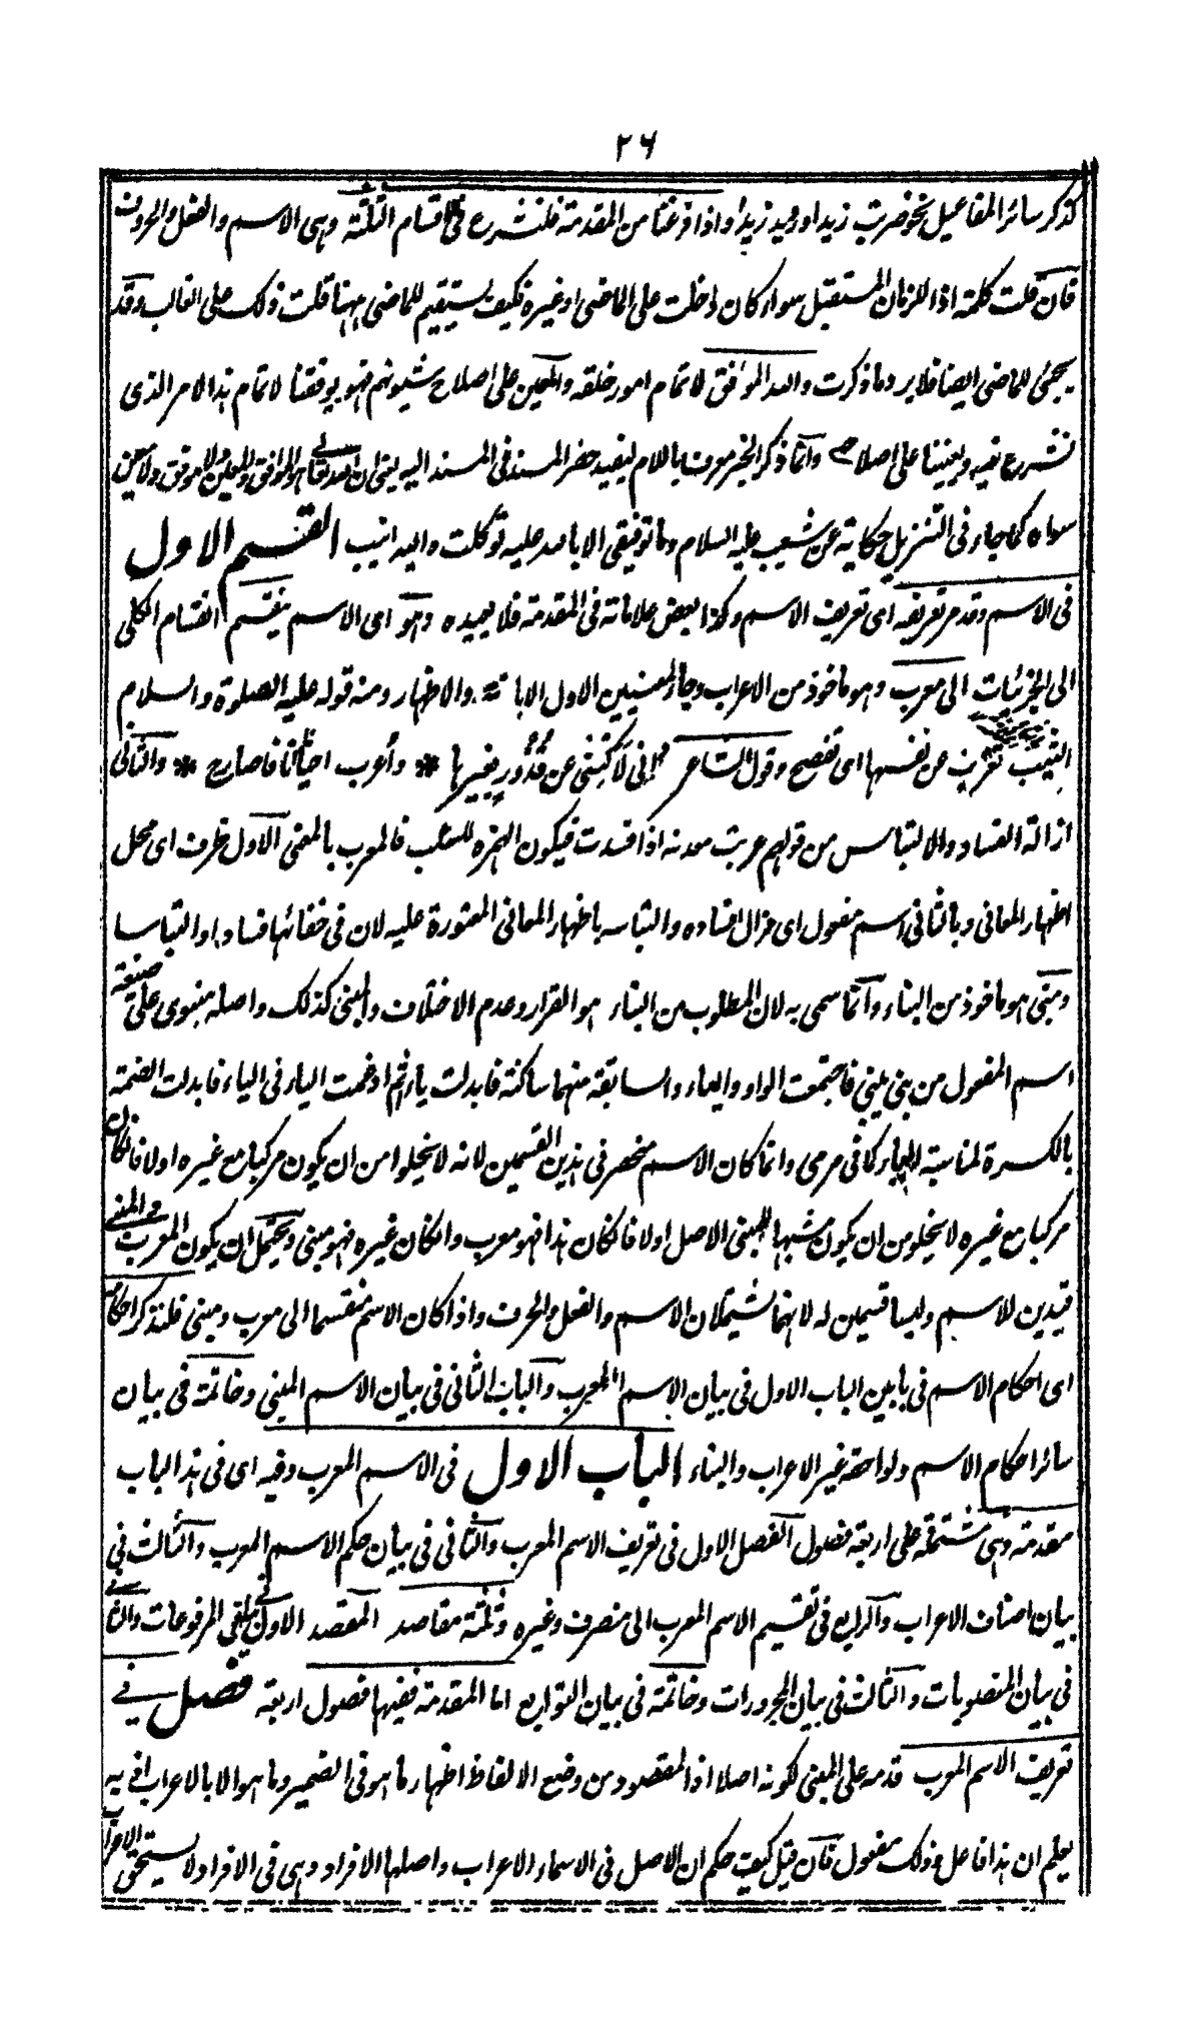 ٢٦
كذكر سائر المفاعيل نحو ضربت زيدا اوويد زيدا واذا فرغنا من المقدمة فلنشرع فى الاقسام الثلثة وهى الاسم والفعل والحروف
فان قلت كلمة اذا للزمان المستقبل سواء كان دخلت على الماضى او غيره فكيف يستقيم للماضى ههنا قلت ذلك على الغالب وقد
يجئ للماضى ايضا فلا يرد ما ذكرت والله الموافق لاتمام امور خلقه والمعين على اصلاح شيونهم فهو يوفقنا لاتمام هذا الامر الذى
نشرع فيه ويعيننا على اصلاحه وانما ذكر الخبر معرفا باللام ليفيد حصر المسند فى المسند اليه يعنى ان الله تعالى هو الموافق والمعين لا موفق ولا معين
سواه كما جاء فى التنزيل حكاية عن شعيب عليه السلام وما توفيقى الا بالله عليه توكلت واليه انيب القسم الاول
فى الاسم وقد مر تعريفه اى تعريف الاسم وكذا بعض علاماته فى المقدمة فلا يعيده وهو اى الاسم ينقسم انقسام الكلى
الى الجزئيات الى معرب وهو ماخوذ من الاعراب وجاء لمعنيين الاول الابانة والاظهار ومنه قوله عليه الصلوة والسلام
الثيب تعرب عن نفسها اى تفصح وقول الشاعر انى لاكنى عن قذور بغيرها * واعرب احيانا فاصارح * والثانى
ازالة الفساد والالتباس من قولهم عربت معدته اذا فسدت فيكون الهمزة للسلب فالمعرب بالمعنى الاول ظرف اى محل
اظهار المعانى وبالثانى اسم مفعول اى مزال افساده والتباسه باظهار المعانى المعتورة عليه لان فى خفائها فسادا والتباسا
ومبنى هو ماخوذ من البناء وانما سمى به لان المطلوب من البناء هو القرار وعدم الاختلاف والمبنى كذلك واصله مبنوى على صيغة
اسم المفعول من بنى يبنى فاجتمعت الواو والياء والسابقة منهما ساكنة فابدلت ياء ثم ادغمت الياء فى الياء فابدلت الضمة
بالكسرة لمناسبة الياء كما فى مرمى وانما كان الاسم منحصر فى هذين القسمين لانه لا يخلوا من ان يكون مركبا مع غيره اولا فان كان
مركبا مع غيره لا يخلو من ان يكون مشبها للمبنى الاصل اولا فان كان هذا فهو معرب وان كان غيره فهو مبنى ويحتمل ان يكون المعرب والمبنى
قيدين للاسم وليسا قسيمين له لانهما شيتملان الاسم والفعل والحرف واذا كان الاسم منقسما الى معرب ومبنى فلنذكر احكامه
اى احكام الاسم فى بابين الباب الاول فى بيان الاسم المعرب والباب الثانى فى بيان الاسم المبنى وخاتمة فى بيان
سائر احكام الاسم ولواحقه غير الاعراب والبناء الباب الاول فى الاسم المعرب وفيه اى فى هذا الباب
مقدمة وهى مشتملة على اربعة فصول الفصل الاول فى تعريف الاسم المعرب والثانى فى بيان حكم الاسم المعرب والثالث فى
بيان اصناف الاعراب والرابع فى تقسيم الاسم المعرب الى منصرف وغيره وثلثة مقاصد المقصد الاول فى المرفوعات والثانى
فى بيان المنصوبات والثالث فى بيان المجرورات وخاتمة فى بيان التوابع اما المقدمة ففيها فصول اربعة فصل فى
تعريف الاسم المعرب قدمه على المبنى لكونه اصلا اذ المقصود من وضع الالفاظ اظهار ما هو فى الضمير وما هو الا بالاعراب اذ به
يعلم ان هذا فاعل وذلك مفعول فان قيل كيف حكم ان الاصل فى الاسماء الاعراب واصلها الافراد وهى فى الافراد لا يستحق الاعراب